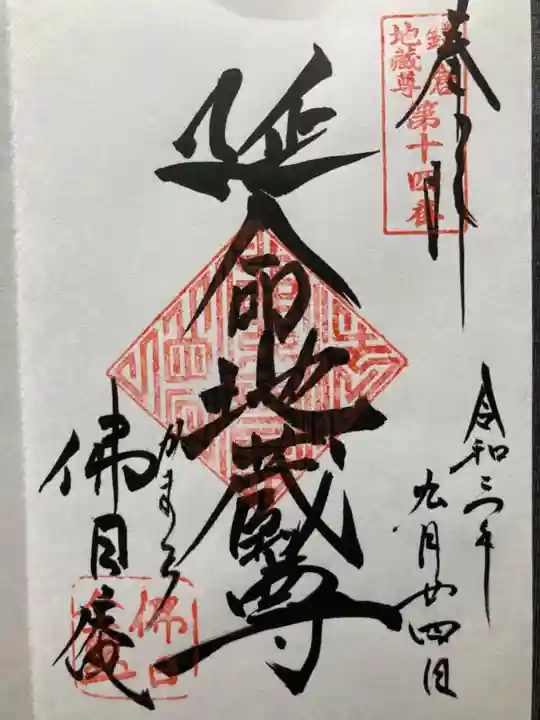 奉拝
鎌倉
地蔵尊
第十四番
令和三年
九月廿四日
延命地蔵尊
かまくら
佛日庵